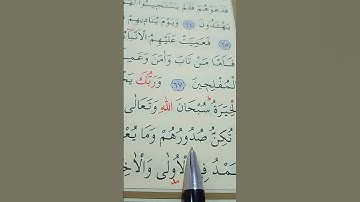 فَدَعَوْهُمْ فَلَمْ يَسْتَجِيبُوا
يَهْتَدُونَ ﴿٦٤﴾ وَيَوْمَ يُنَادِيهِمْ
﴿٦٥﴾ فَعَمِيَتْ عَلَيْهِمُ الْاَنْبَا
فَاَمَّا مَنْ تَابَ وَاٰمَنَ وَعَمِـ
الْمُفْلِحِينَ ﴿٦٧﴾ وَرَبُّكَ يَخْـ
ـخِيَرَةُ سُبْحَانَ اللّٰهِ وَتَعَالٰى
تُكِنُّ صُدُورُهُمْ وَمَا يُعْـ
ـمْدُ فِي الْاُولٰى وَالْاٰخِـ